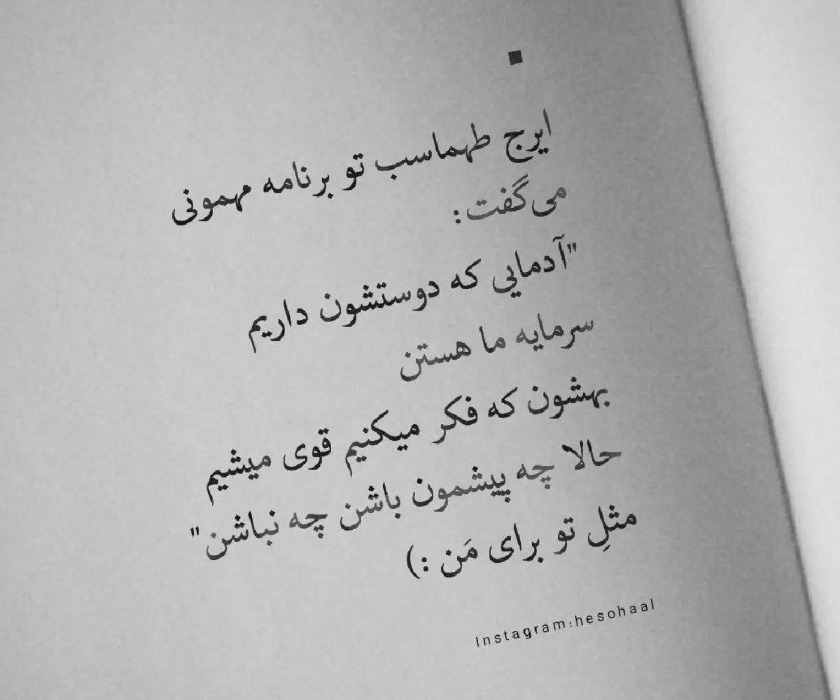 ایرج طهماسب تو برنامه مهمونی
می‌گفت:
"آدمایی که دوستشون داریم
سرمایه ما هستن
بهشون که فکر میکنیم قوی میشیم
حالا چه پیشمون باشن چه نباشن"
مثلِ تو برای مَن :)
Instagram:hesohaal